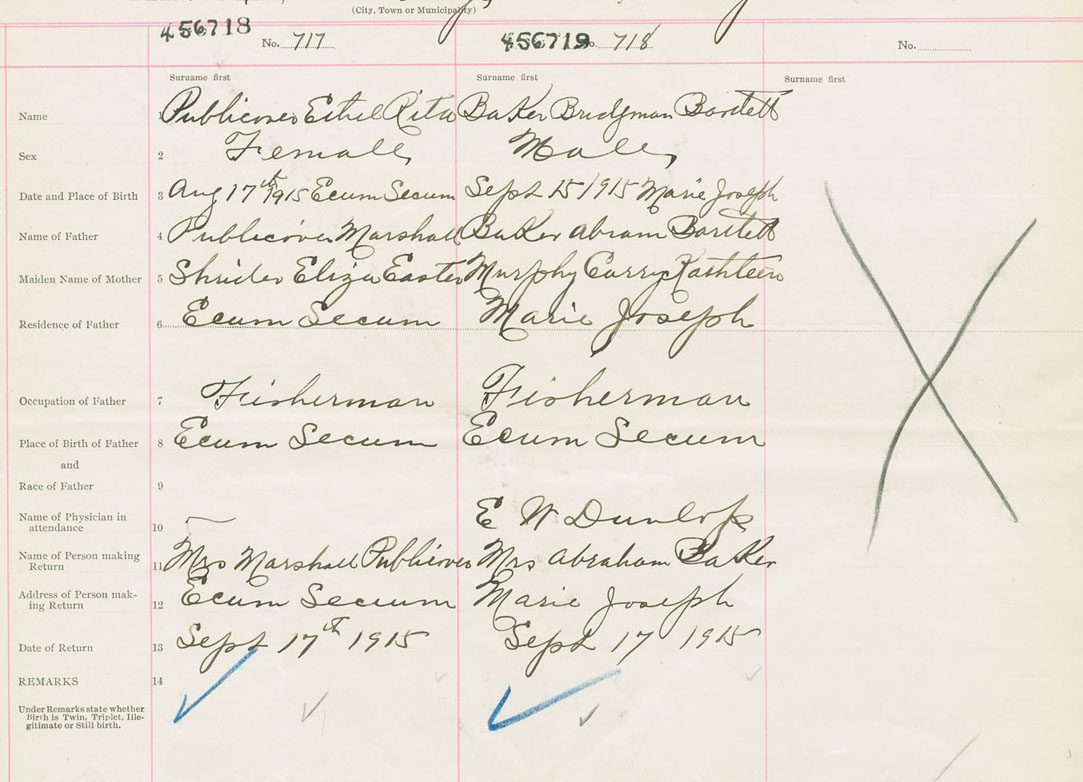 (City, Town or Municipality)
456718 No. 717 456719 No. 718 No.
Surname first Surname first Surname first
Name 1 Publicover Ethel Rita Baker Bridgman Bartlett
Sex 2 Female Male
Date and Place of Birth 3 Aug 17th 1915 Ecum Secum Sept 15 1915 Marie Joseph
Name of Father 4 Publicover Marshall Baker Abram Bartlett
Maiden Name of Mother 5 Eliza Easter Murphy Carry Kathleen
Residence of Father 6 Ecum Secum Marie Joseph
Occupation of Father 7 Fisherman Fisherman
Place of Birth of Father 8 Ecum Secum Ecum Secum
and
Race of Father 9
Name of Physician in
attendance 10 E W Dunlop
Name of Person making
Return 11 Mrs Marshall Publicover Mrs Abraham Baker
Address of Person mak-
ing Return 12 Ecum Secum Marie Joseph
Date of Return 13 Sept 17th 1915 Sept 17 1915
REMARKS 14
Under Remarks state whether
Birth is Twin, Triplet, Ille-
gitimate or Still birth.